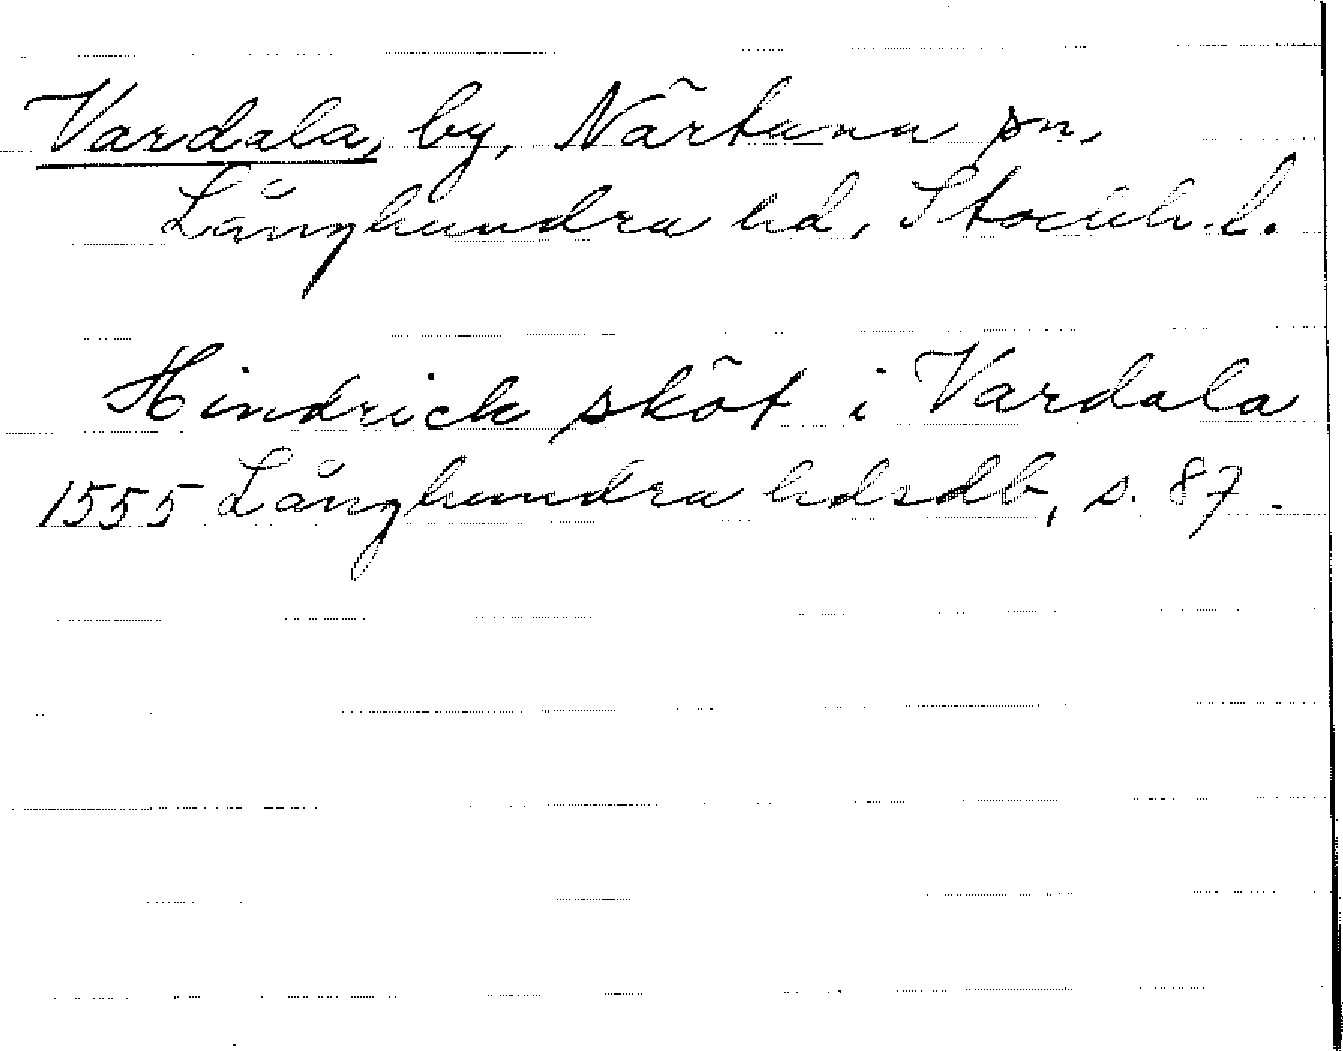 Vardala, by, Närtuna sn,
Långhundra hd, Stockh. l.
Hindrick sköt i Vardala
1555 Långhundra hdsdb, s. 87.